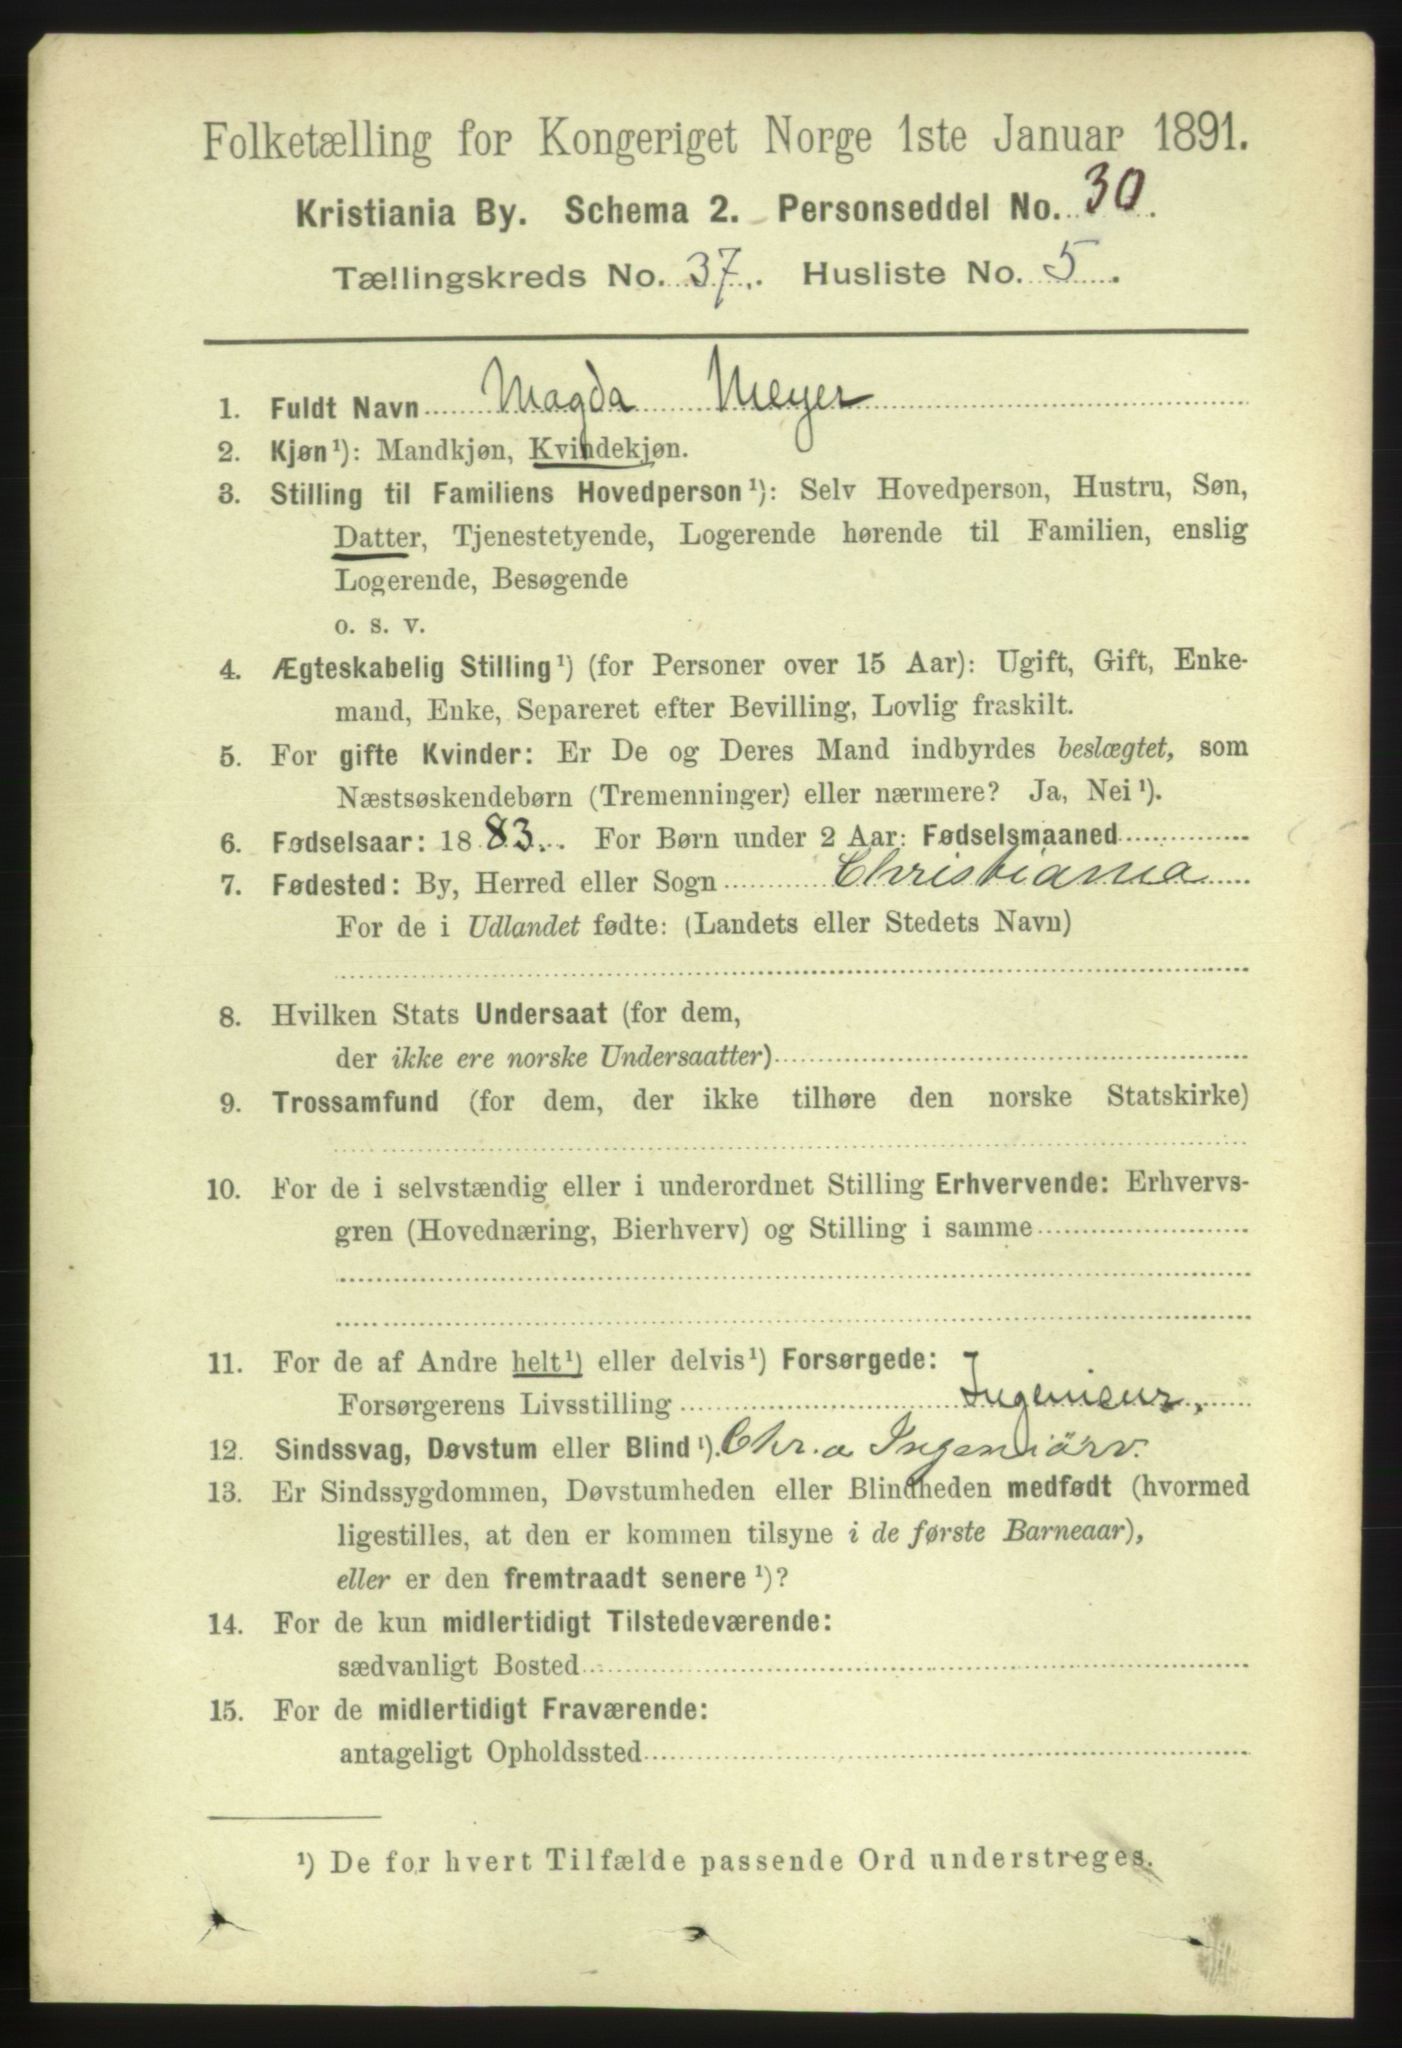 Folketælling for Kongeriget Norge 1ste Januar 1891.
Kristiania By. Schema 2. Personseddel No. 30.
Tællingskreds No. 37. Husliste No. 5.
1. Fuldt Navn Magda Meyer
2. Kjøn¹): Mandkjøn, Kvindekjøn.
3. Stilling til Familiens Hovedperson¹): Selv Hovedperson, Hustru, Søn,
Datter, Tjenestetyende, Logerende hørende til Familien, enslig
Logerende, Besøgende
o. s. v.
4. Ægteskabelig Stilling¹) (for Personer over 15 Aar): Ugift, Gift, Enke-
mand, Enke, Separeret efter Bevilling, Lovlig fraskilt.
5. For gifte Kvinder: Er De og Deres Mand indbyrdes beslægtet, som
Næstsøskendebørn (Tremenninger) eller nærmere? Ja, Nei¹).
6. Fødselsaar: 1883. For Børn under 2 Aar: Fødselsmaaned
7. Fødested: By, Herred eller Sogn Christiania
For de i Udlandet fødte: (Landets eller Stedets Navn)
8. Hvilken Stats Undersaat (for dem,
der ikke ere norske Undersaatter)
9. Trossamfund (for dem, der ikke tilhøre den norske Statskirke)
10. For de i selvstændig eller i underordnet Stilling Erhvervende: Erhvervs-
gren (Hovednæring, Bierhverv) og Stilling i samme
11. For de af Andre helt¹) eller delvis¹) Forsørgede:
Forsørgerens Livsstilling Ingenieur,
12. Sindssvag, Døvstum eller Blind¹). Chr.a Ingeniörv.
13. Er Sindssygdommen, Døvstumheden eller Blindheden medfødt (hvormed
ligestilles, at den er kommen tilsyne i de første Barneaar),
eller er den fremtraadt senere¹)?
14. For de kun midlertidigt Tilstedeværende:
sædvanligt Bosted
15. For de midlertidigt Fraværende:
antageligt Opholdssted
¹) De for hvert Tilfælde passende Ord understreges.